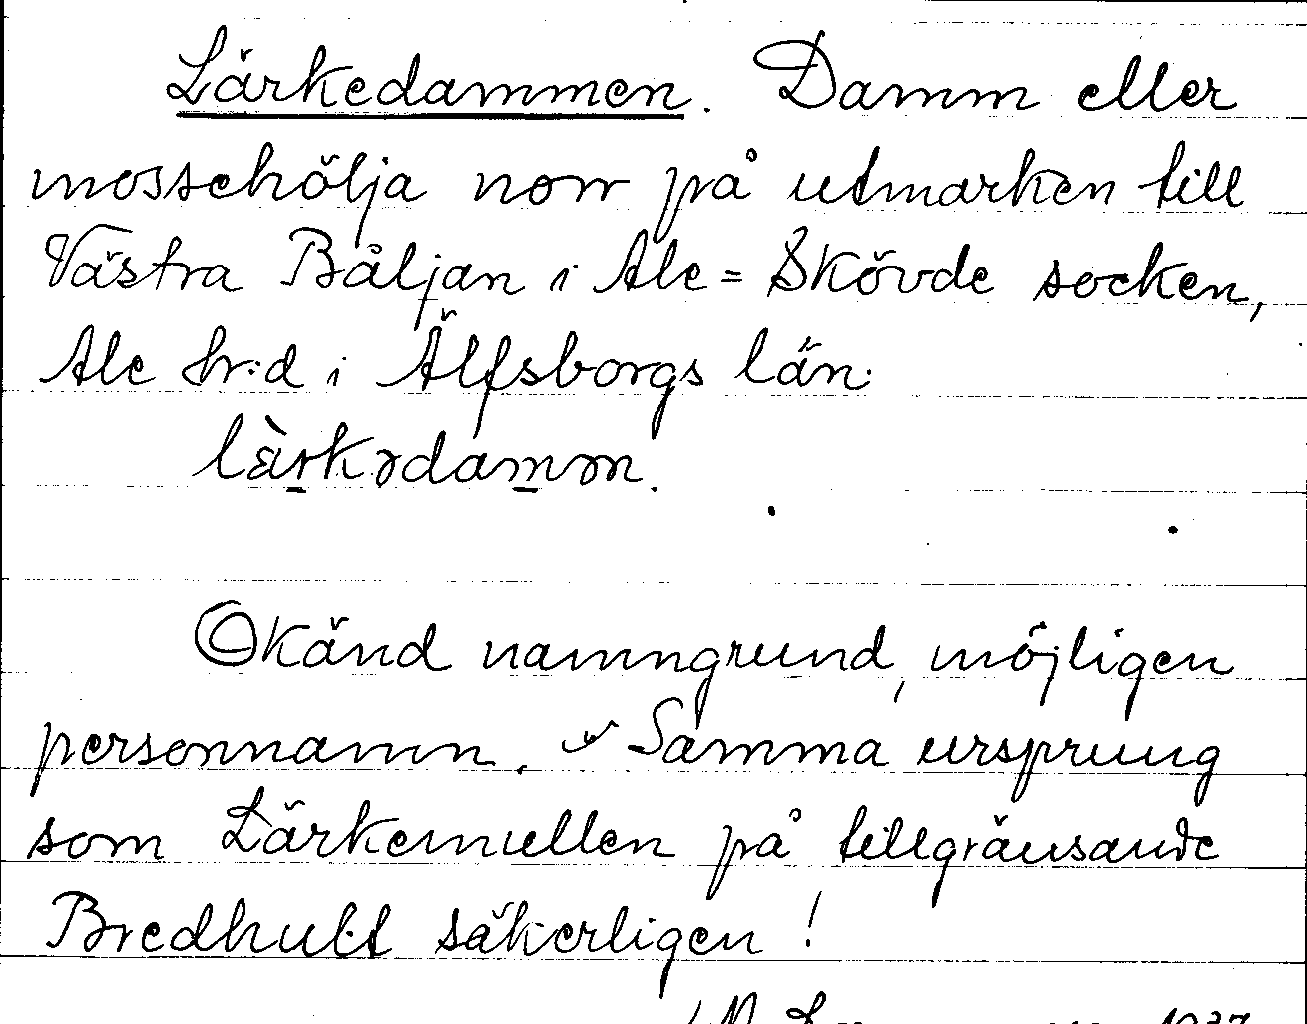 Lärkedammen. Damm eller
mossehölja norr på utmarken till
Västra Båljan i Ale=Skövde socken,
Ale hr:d i Älfsborgs län.
lὰrkədamən.
Okänd namngrund, möjligen
personnamn. Samma ursprung
som Lärkemullen på tillgränsande
Bredhult säkerligen!